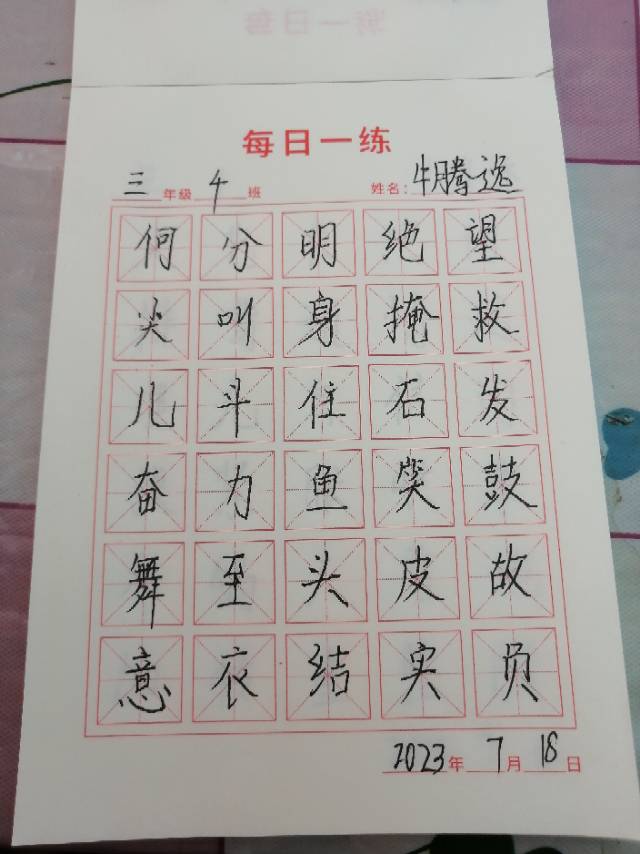 每日一练
三年级 4 班 姓名：牛腾逸
何分明绝望
尖叫身掩救
儿斗住石发
奋力鱼哭鼓
舞至头皮故
意衣结实负
2023年 7 月 18 日